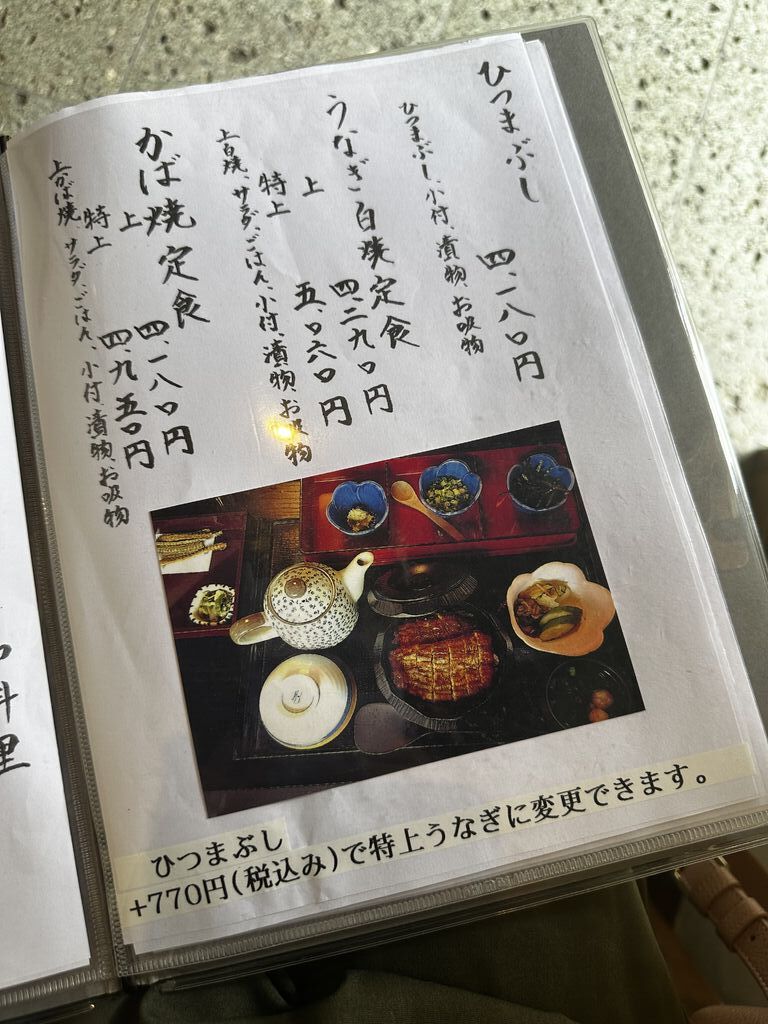 ひつまぶし
四、一八〇円
ひつまぶし、小付、漬物、お吸物
うなぎ白焼定食
上 四、二九〇円
特上 五、〇六〇円
上白焼、サラダ、ごはん、小付、漬物、お吸物
かば焼定食
上 四、一八〇円
特上 四、九五〇円
上かば焼、サラダ、ごはん、小付、漬物、お吸物
ひつまぶし
+770円(税込み)で特上うなぎに変更できます。
料理